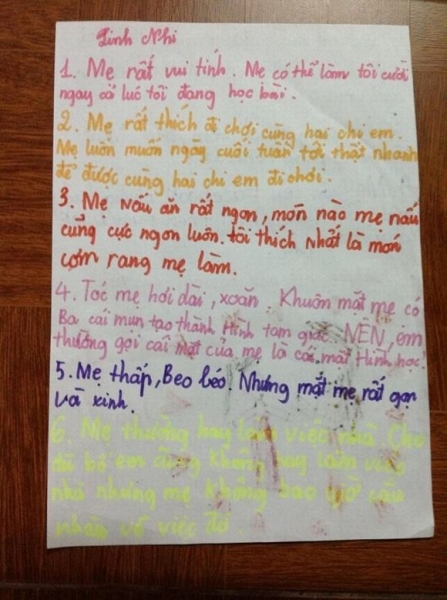 Linh Nhi
1. Mẹ rất vui tính. Mẹ có thể làm tôi cười
ngay cả lúc tôi đang học bài.
2. Mẹ rất thích đi chơi cùng hai chị em.
Mẹ luôn muốn ngày cuối tuần tới thật nhanh
để được cùng hai chị em đi chơi.
3. Mẹ nấu ăn rất ngon, món nào mẹ nấu
cũng cực ngon luôn. tôi thích nhất là món
cơm rang mẹ làm.
4. Tóc mẹ hơi dài, xoăn. Khuôn mặt mẹ có
Ba cái mụn tạo thành Hình tam giác. NÊN, em
thường gọi cái mặt của mẹ là cái mặt Hình học!
5. Mẹ thấp, Beo béo. Nhưng mắt mẹ rất
và xinh.
6. Mẹ thường hay làm việc nhà Cho
dù bố em cũng không hay làm việc
nhà nhưng mẹ không bao giờ cằn
nhằn về việc đó.